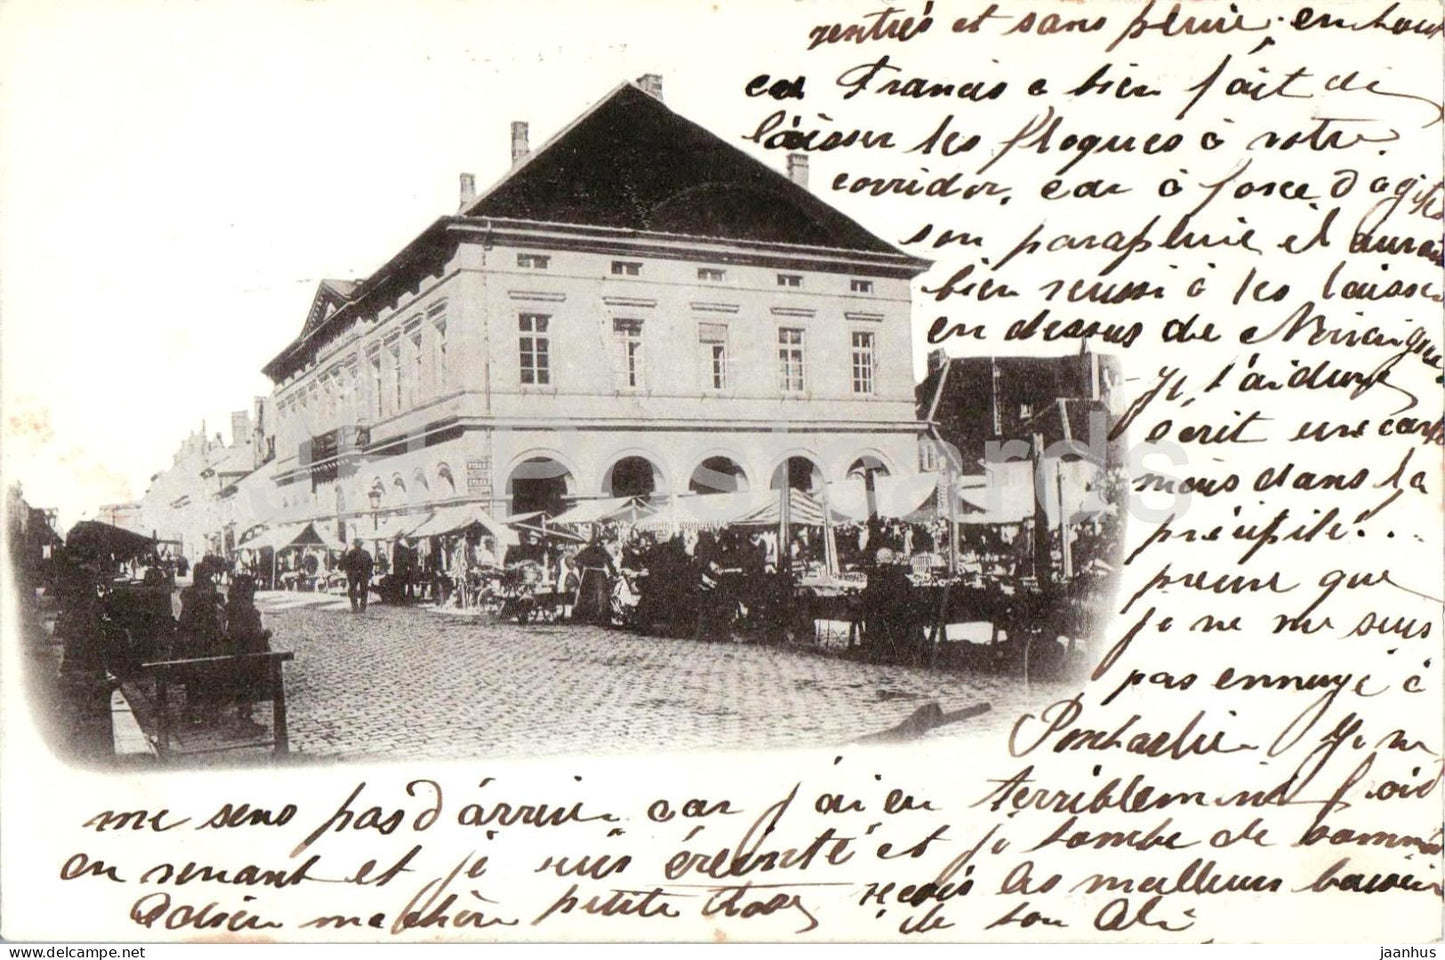 rentrés et sans pluie, en tout
cas Francis a bien fait de
laisser les floques à votre
corridor, car à force d'agiter
son parapluie il aurait
bien réussi à les laisser
en dessus de
Je t'
écrit une carte
mais dans la
précipité...
preuve que
je ne me suis
pas ennuyé à
Je ne
me sens pas d'écrire car j'ai eu terriblement froid
en venant et je suis éreinté et je tombe de sommeil
Adieu ma chère petite Rose reçois les meilleurs baisers
de ton
JH Postcards
jaanhus